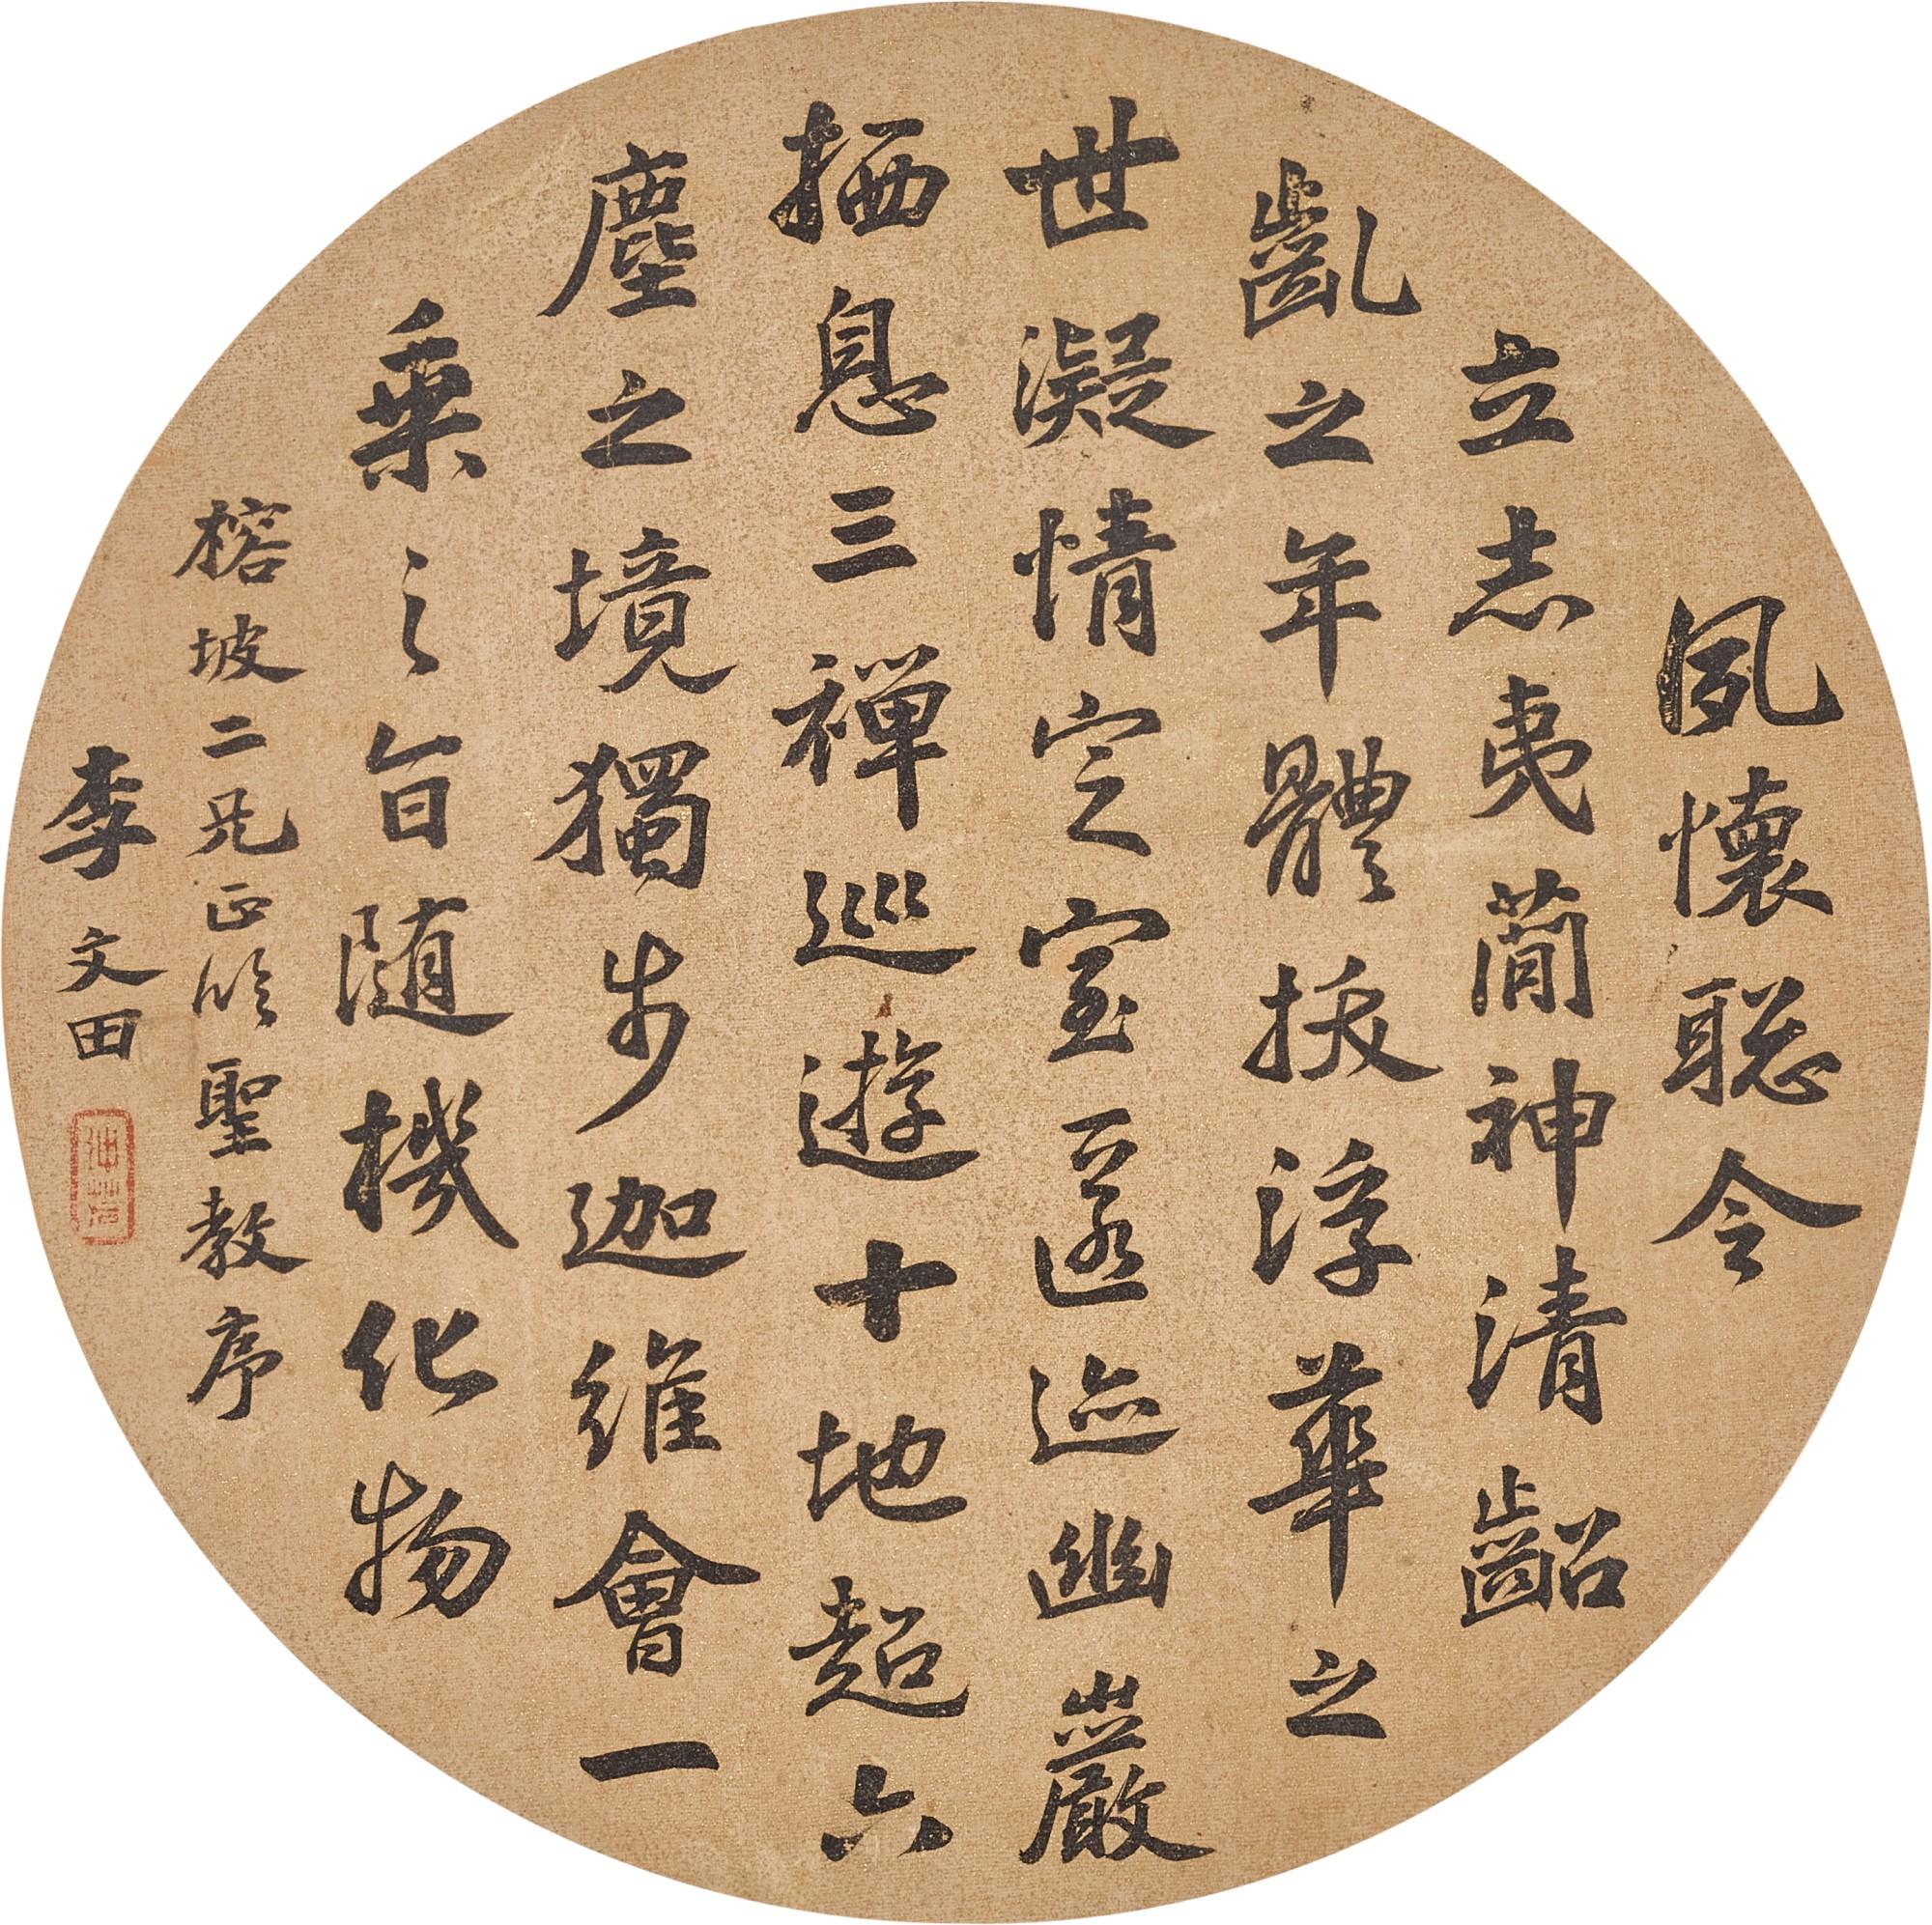 夙懷聰令
立志夷蕳神清齠
齓之年體拔浮華之
世凝情定室匿迹幽巖
栖息三禪巡遊十地超六
塵之境獨步迦維會一
乘之旨随機化物
榕坡二兄正臨聖教序
李文田